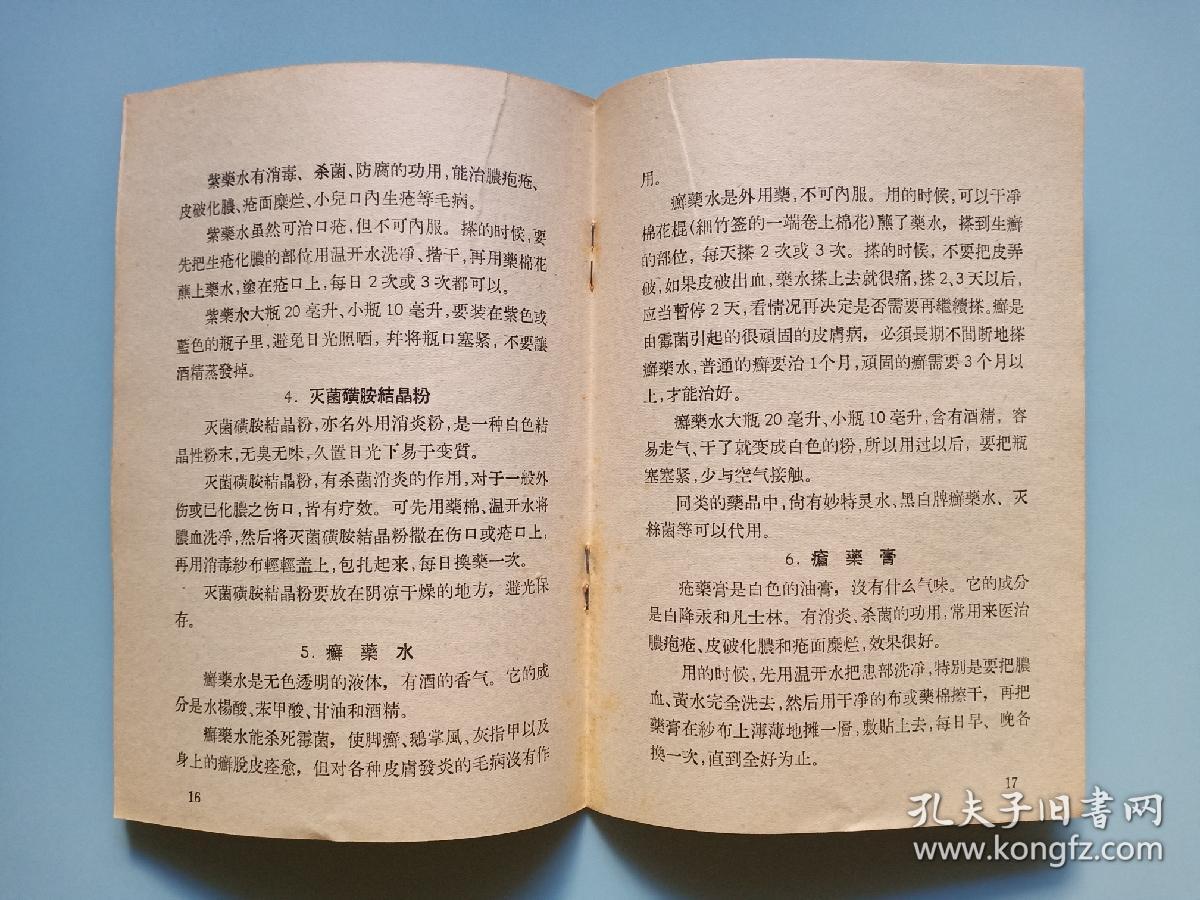 紫藥水有消毒、杀菌、防腐的功用,能治膿疱疮、
皮破化膿、疮面糜烂、小兒口內生疮等毛病。
紫藥水虽然可治口疮,但不可內服。搽的时候,要
先把生疮化膿的部位用温开水洗淨、揩干,再用藥棉花
蘸上藥水,塗在疮口上,每日2次或3次都可以。
紫藥水大瓶20毫升、小瓶10毫升,要装在紫色或
藍色的瓶子里,避免日光照晒,幷将瓶口塞紧,不要讓
酒精蒸發掉。
4. 灭菌磺胺結晶粉
灭菌磺胺結晶粉,亦名外用消炎粉,是一种白色結
晶性粉末,无臭无味,久置日光下易于变質。
灭菌磺胺結晶粉,有杀菌消炎的作用,对于一般外
伤或已化膿之伤口,皆有疗效。可先用藥棉、温开水将
膿血洗淨,然后将灭菌磺胺結晶粉撒在伤口或疮口上,
再用消毒紗布輕輕盖上,包扎起来,每日換藥一次。
灭菌磺胺結晶粉要放在阴凉干燥的地方,避光保
存。
5. 癬藥水
癬藥水是无色透明的液体,有酒的香气。它的成
分是水楊酸、苯甲酸、甘油和酒精。
癬藥水能杀死霉菌,使脚癣、鵝掌風、灰指甲以及
身上的癬脫皮痊愈,但对各种皮膚發炎的毛病沒有作
16
用。
癬藥水是外用藥,不可內服。用的时候,可以干淨
棉花棍(細竹签的一端卷上棉花)蘸了藥水,搽到生癬
的部位,每天搽2次或3次。搽的时候,不要把皮弄
破,如果皮破出血,藥水搽上去就很痛,搽2、3天以后,
应当暫停2天,看情况再决定是否需要再繼續搽。癬是
由霉菌引起的很頑固的皮膚病,必須長期不間断地搽
癬藥水,普通的癬要治1个月,頑固的癬需要3个月以
上,才能治好。
癬藥水大瓶20毫升、小瓶10毫升,含有酒精,容
易走气、干了就变成白色的粉,所以用过以后,要把瓶
塞塞紧,少与空气接触。
同类的藥品中,尙有妙特灵水,黑白牌癬藥水、灭
絲菌等可以代用。
6. 瘡藥膏
疮藥膏是白色的油膏,沒有什么气味。它的成分
是白降汞和凡士林。有消炎、杀菌的功用,常用来医治
膿疱疮、皮破化膿和疮面糜烂,效果很好。
用的时候,先用温开水把患部洗淨,特別是要把膿
血、黃水完全洗去,然后用干淨的布或藥棉擦干,再把
藥膏在紗布上薄薄地摊一層,敷貼上去,每日早、晚各
換一次,直到全好为止。
17
孔夫子旧書网
www.kongfz.com